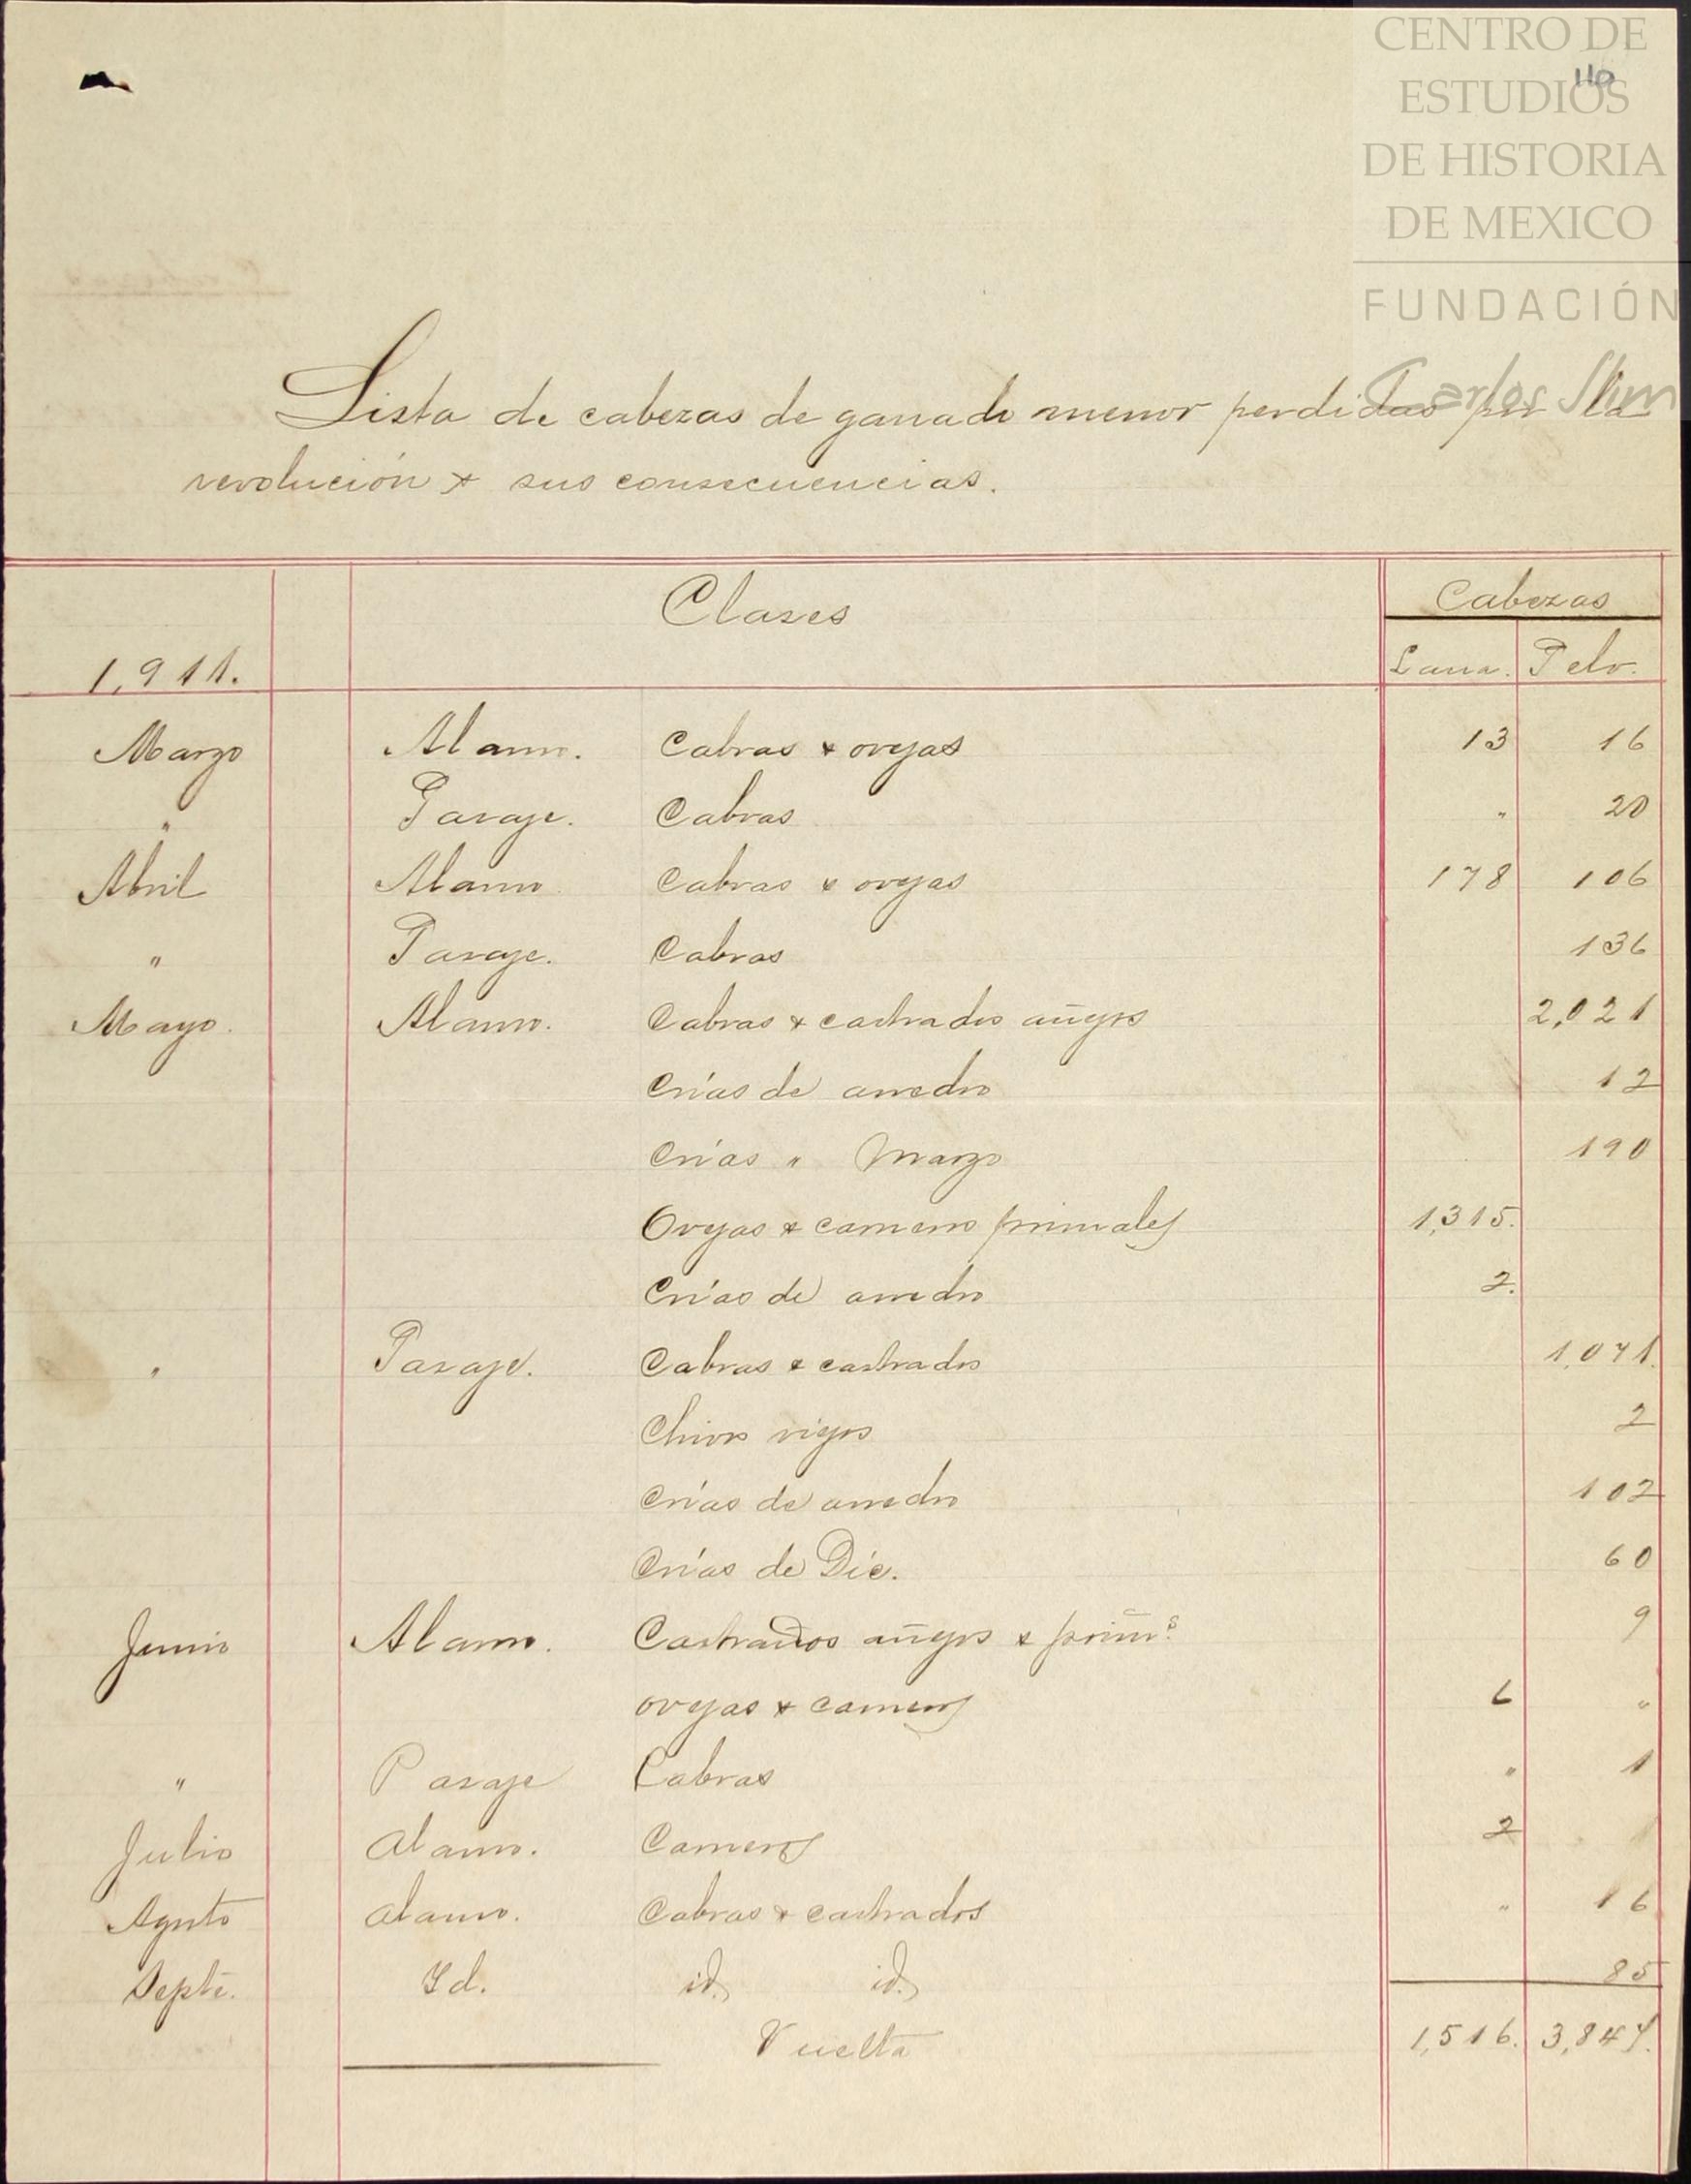 CENTRO DE
ESTUDIOS
DE HISTORIA
DE MEXICO
FUNDACIÓN
Carlos Slim
110
Lista de cabezas de ganado menor perdidas por la
revolución & sus consecuencias.
Clases Cabezas
1,911. Lana. Pelo.
Marzo Alamo. Cabras & ovejas 13 16
" Pasaje. Cabras " 20
Abril Alamo Cabras & ovejas 178 106
" Pasaje. Cabras 136
Mayo. Alamo. Cabras & castrados añejos 2,021
Crías de arredro 12
Crías " Marzo 190
Ovejas & carneros primales 1,315.
Crías de arredro 2.
" Pasaje. Cabras & castrados 1,071.
Chivos viejos 2
Crías de arredro 102
Crías de Dic. 60
Junio Alamo. Castrados añejos & prims. 9
ovejas & carneros 6 "
" Pasaje Cabras " 1
Julio Alamo. Carneros 2
Agosto Alamo. Cabras & castrados " 16
Septe. Id. id. id. 85
Vuelta 1,516. 3,847.